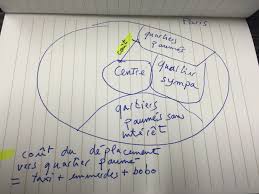 Paris
quartiers
paumés
coût
Centre
quartier
sympa
quartiers
paumés sans
intérêt
coût du déplacement
vers quartier paumé
= taxi + emmerdes + bobo